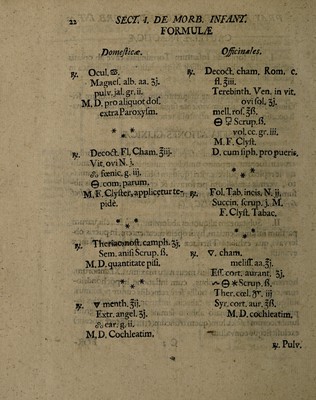 22 SECT. I. DE MORB. INFANT.
FORMULÆ
Domesticæ.
℞. Ocul. 🜹.
Magnes. alb. aa. ʒj.
pulv. jal. gr. ii.
M. D. pro aliquot dos.
extra Paroxysm.
* * *
℞. Decoct. Fl. Cham. ℥iij.
Vit. ovi N. j.
fœnic. g. iij,
🜔. com. parum.
M. F. Clyster, applicetur te-
pidè.
* * *
℞. Theriac. nost. camph. ʒj,
Sem. anisi Scrup. ß.
M. D. quantitate pisi.
* * *
℞. 🜄 menth. ℥ij.
Extr. angel. ʒj.
car. g. ii.
M. D. Cochleatim.
Officinales.
℞. Decoct. cham. Rom. c.
fl. ℥iii.
Terebinth. Ven. in vit.
ovi sol. ʒj.
mell. ros. ℥ß.
🜔 Scrup. ß.
vol. cc. gr. iii.
M. F. Clyst.
D. cum siph. pro pueris.
* * *
℞. Fol. Tab. incis. N. ij.
Succin, scrup. j. M.
F. Clyst. Tabac.
* * *
℞. 🜄. cham.
meliss. aa. ℥j.
Ess. cort. aurant. ʒj.
🜔 * Scrup. ß.
Ther. cœl. gr. iij
Syr. cort. aur. ℥ß.
M. D. cochleatim.
℞. Pulv.